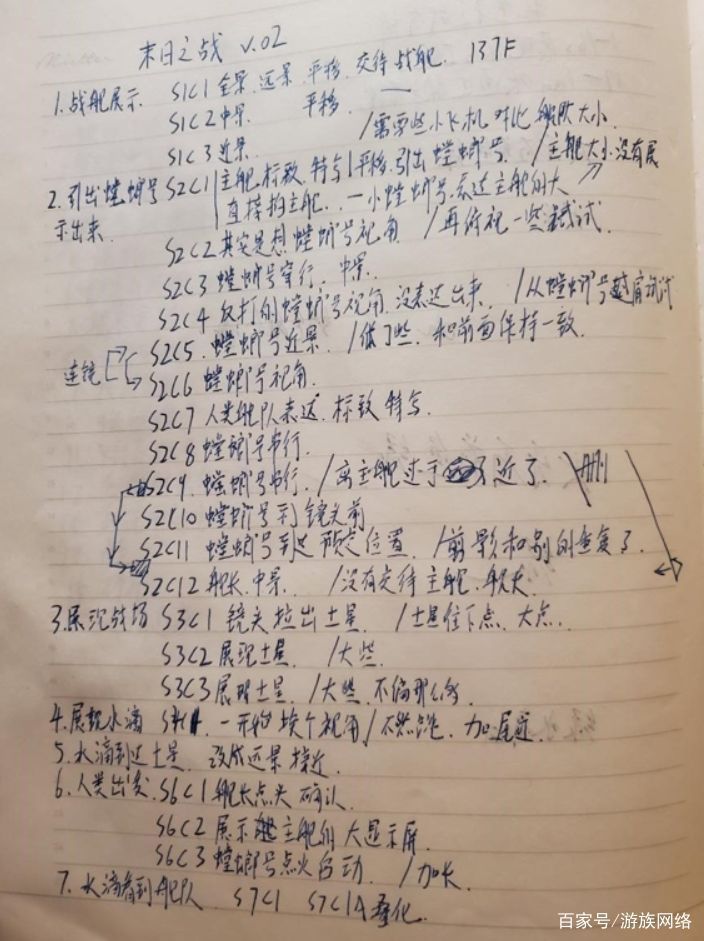 末日之战 V.02
1.战舰展示 S1C1 全景.远景.平移.交待战舰. 137F
S1C2 中景 平移. —
S1C3 近景 /需要些小飞机对比舰队大小.
2.引出螳螂号 S2C1 主舰.标致.特写|平移.引出螳螂号. /主舰大小没有展
示出来. 直接拍主舰..一小螳螂号.表达主舰的大
S2C2 其实是想螳螂号视角 /再俯视一些试试.
S2C3 螳螂号穿行.中景.
S2C4 反打的螳螂号视角.没表达出来. /从螳螂号越肩试试
连镜 S2C5.螳螂号近景. /低了些.和前面保持一致.
S2C6 螳螂号视角.
S2C7 人类舰队表达.标致特写.
S2C8 螳螂号书行.
S2C9.螳螂号书行. /离主舰过于近了. 删
S2C10 螳螂号到镜头前
S2C11 螳螂号到达预定位置. /剪影和别的重复了.
S2C12 舰长.中景. /没有交待主舰.舰长
3.展现战场 S3C1 镜头拉出土星. /土星往下点.大点.
S3C2 展现土星 /大些.
S3C3 展现土星 /大些.不偏那么多
4.展现水滴 一开始 个视角/不然跳.加
5.水滴到达土星.改成远景接近.
6.人类出发.S6C1 舰长点头确认.
S6C2 展示主舰的大显示屏.
S6C3 螳螂号点火启动. /加长.
7.水滴看到舰队. S7C1 S7C1A 叠化.
百家号/游族网络